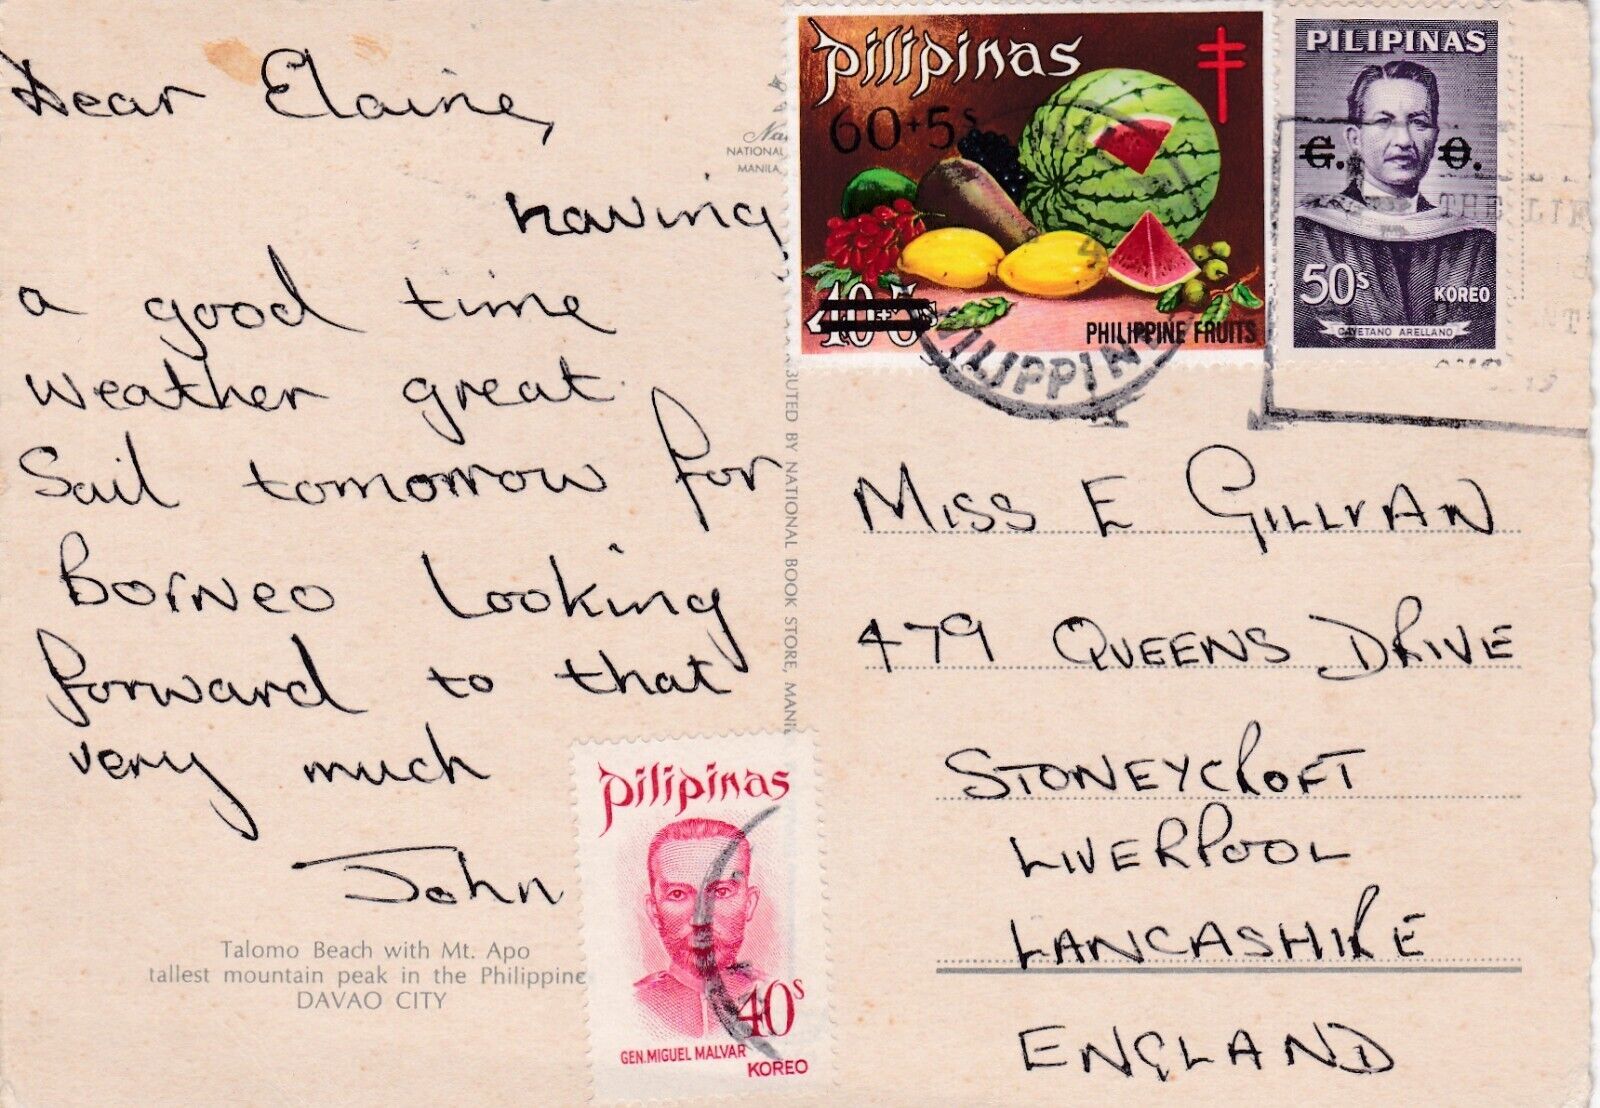 Dear Elaine,
having
a good time
weather great.
Sail tomorrow for
Borneo Looking
forward to that
very much
John
Talomo Beach with Mt. Apo
tallest mountain peak in the Philippine
DAVAO CITY
NATIONAL
MANILA,
BUTED BY NATIONAL BOOK STORE, MANI
pilipinas
60+5s
40+5s
PHILIPPINE FRUITS
PILIPINAS
G. O.
50s KOREO
CAYETANO ARELLANO
THE
PHILIPPIN
MISS E GILLVAN
479 QUEENS DRIVE
STONEYCROFT
LIVERPOOL
LANCASHIRE
ENGLAND
pilipinas
40s
GEN. MIGUEL MALVAR
KOREO